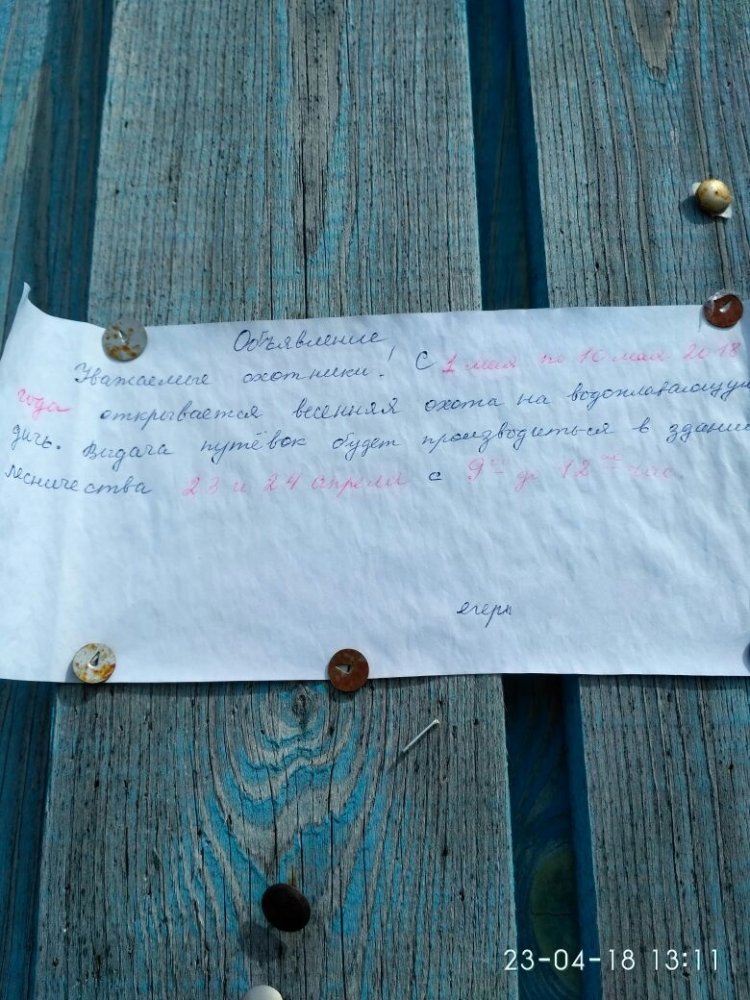 Объявление
Уважаемые охотники! С 1 мая по 10 мая 2018
года открывается весенняя охота на водоплавающую
дичь. Выдача путёвок будет производиться в здании
лесничества 23 и 24 апреля с 9⁰⁰ до 12⁰⁰ час
егерь
23-04-18 13:11